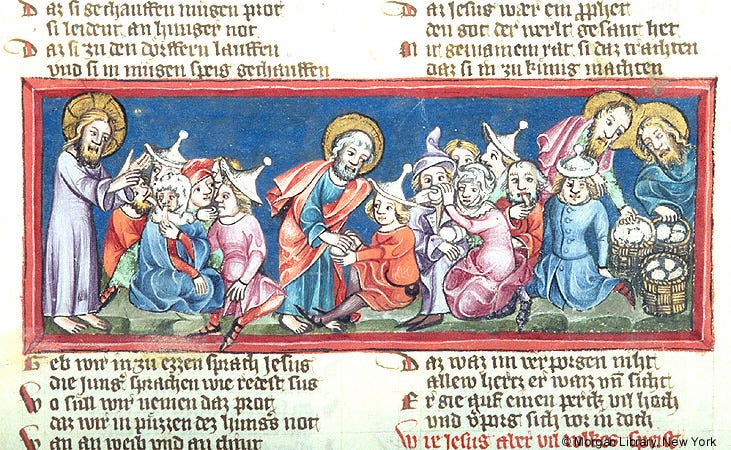 Daz si gechauffen mugen prot
si leident an hunger not
Daz si zu den dörffern lauffen
vnd si in mugen speis gechauffen
Geb wir in zu ezzen sprach Jesus
die Jung sprachen wie redest sus
Wo sull wir nemen daz prot
daz wir in püzzen dez hung's not
An an weib vnd an chint
Daz Jesus wær ein prophet
den got der werlt gesant het
Mit gemainem rat si daz trachten
daz si in zu kunig machten
Daz waz im verporgen niht
allew hertz er waiz vnd sicht
Er gie auf einen perch vil hoch
vnd sich vor in doch
Wie Jesus aber vil
© Morgan Library, New York